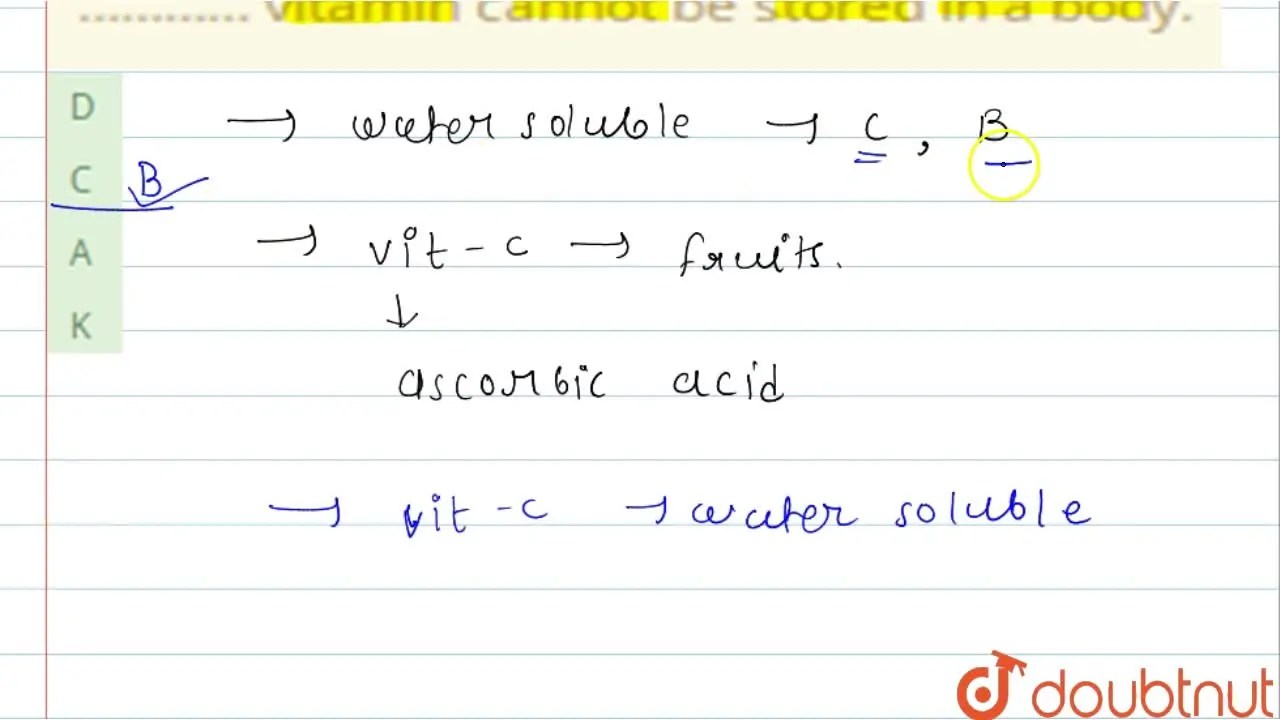 ........... vitamin cannot be stored in a body.
D → water soluble → C , B
C B
→ vit - c → fruits.
A
↓
K
ascorbic acid
→ vit - c → water soluble
doubtnut